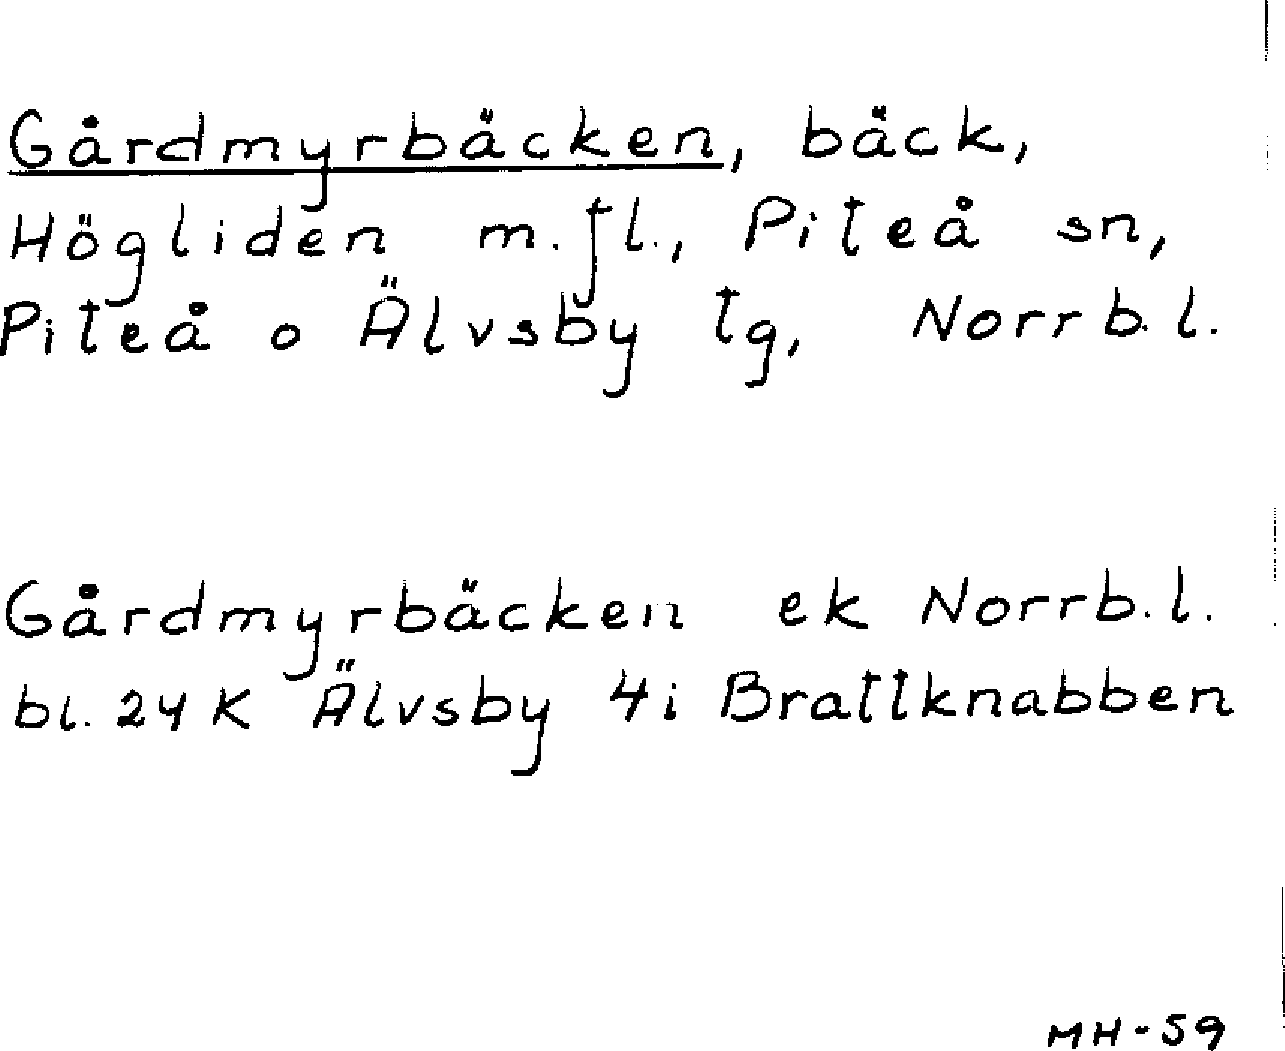 Gårdmyrbäcken, bäck,
Högliden m.fl., Piteå sn,
Piteå o Älvsby tg, Norrb.l.
Gårdmyrbäcken ek Norrb.l.
bl. 24 K Älvsby 4i Brattknabben
MH-59